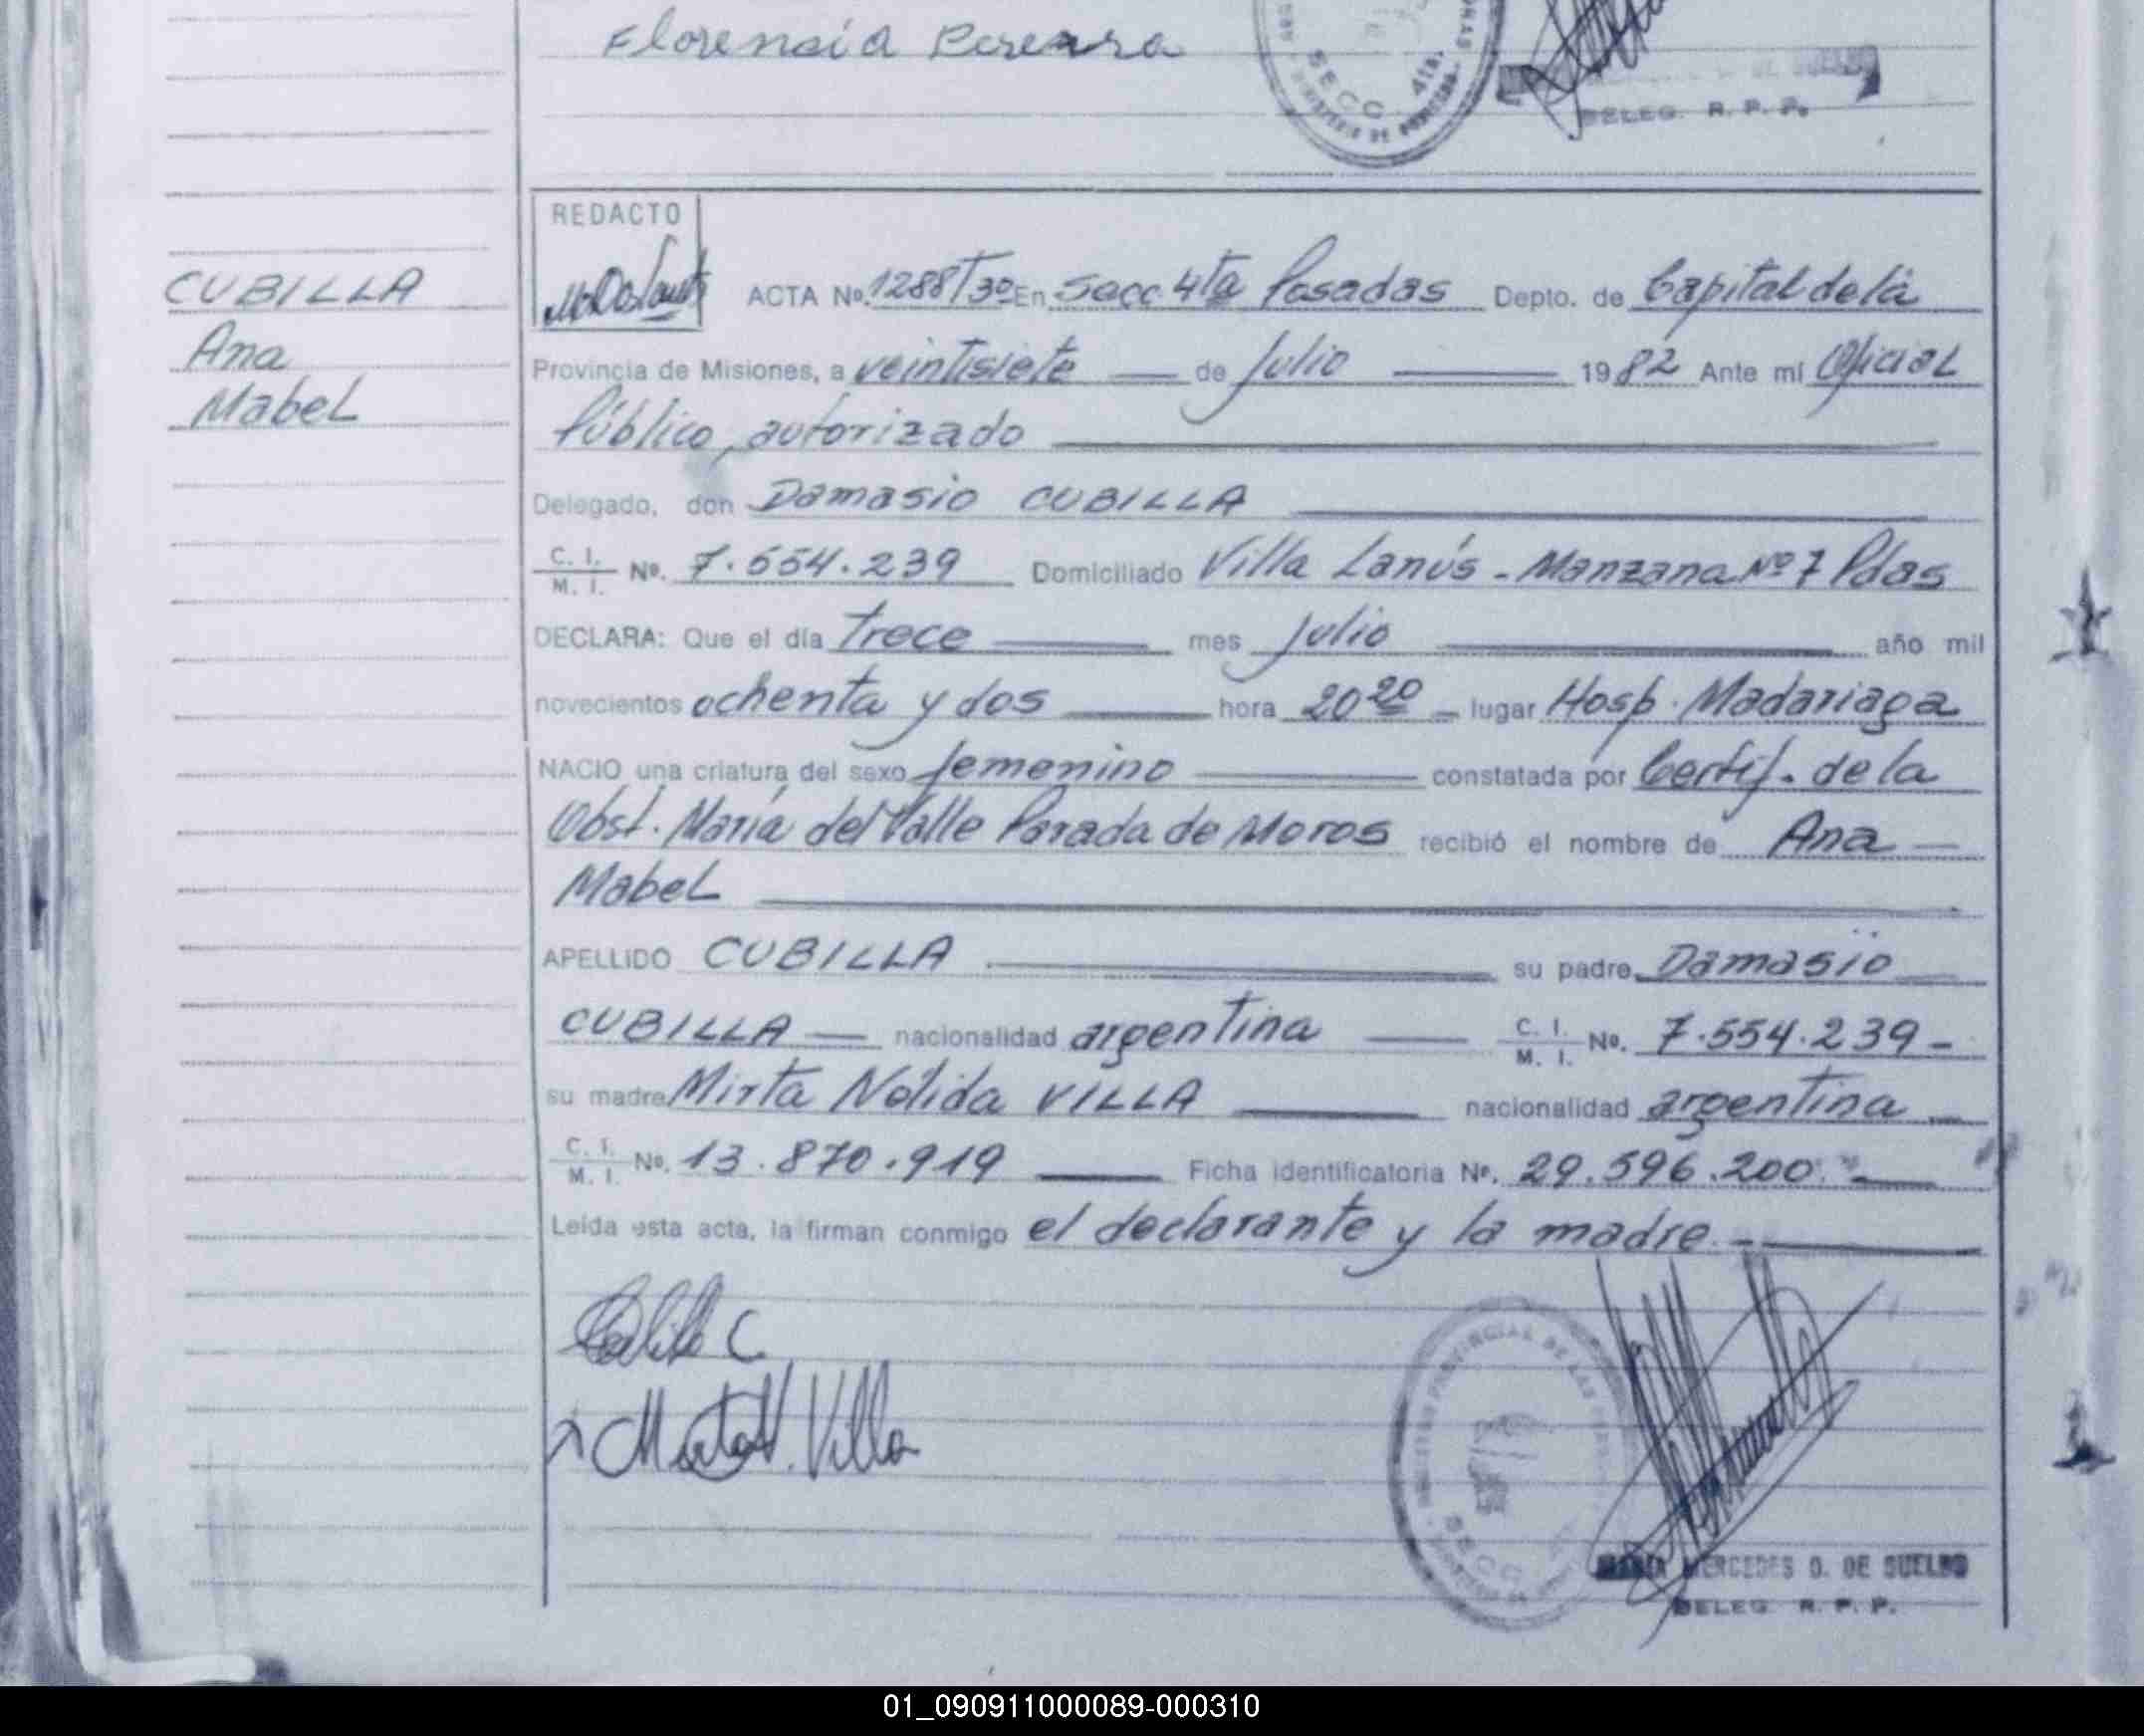 Florencia Pereira
SECC. 4ta.
DELEG. R. P. P.
REDACTO
CUBILLA
Ana
Mabel
ACTA Nº. 1288T30 En Secc 4ta Posadas Depto. de Capital de la
Provincia de Misiones, a veintisiete de Julio 1982 Ante mí Oficial
Público, autorizado
Delegado, don Damasio CUBILLA
C. I. M. I. Nº. 7.554.239 Domiciliado Villa Lanús - Manzana Nº 7 Pdas
DECLARA: Que el día Trece mes Julio año mil
novecientos ochenta y dos hora 20 20 lugar Hosp. Madariaga
NACIO una criatura del sexo femenino constatada por Certif. de la
Obst. María del Valle Parada de Moros recibió el nombre de Ana
Mabel
APELLIDO CUBILLA su padre Damasio
CUBILLA nacionalidad argentina C. I. M. I. Nº. 7.554.239-
su madre Mirta Nélida VILLA nacionalidad argentina
C. I. M. I. Nº. 13.870.919 Ficha identificatoria Nº. 29.596.200
Leída esta acta, la firman conmigo el declarante y la madre.-
Mirta N. Villa
SECC
MARIA MERCEDES O. DE SUELDO
DELEG R. P. P.
01_090911000089-000310